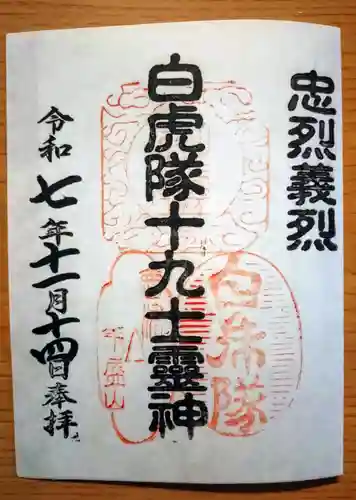 忠烈義烈
白虎隊十九士靈神
令和七年十一月十四日奉拝
白虎隊
飯盛山